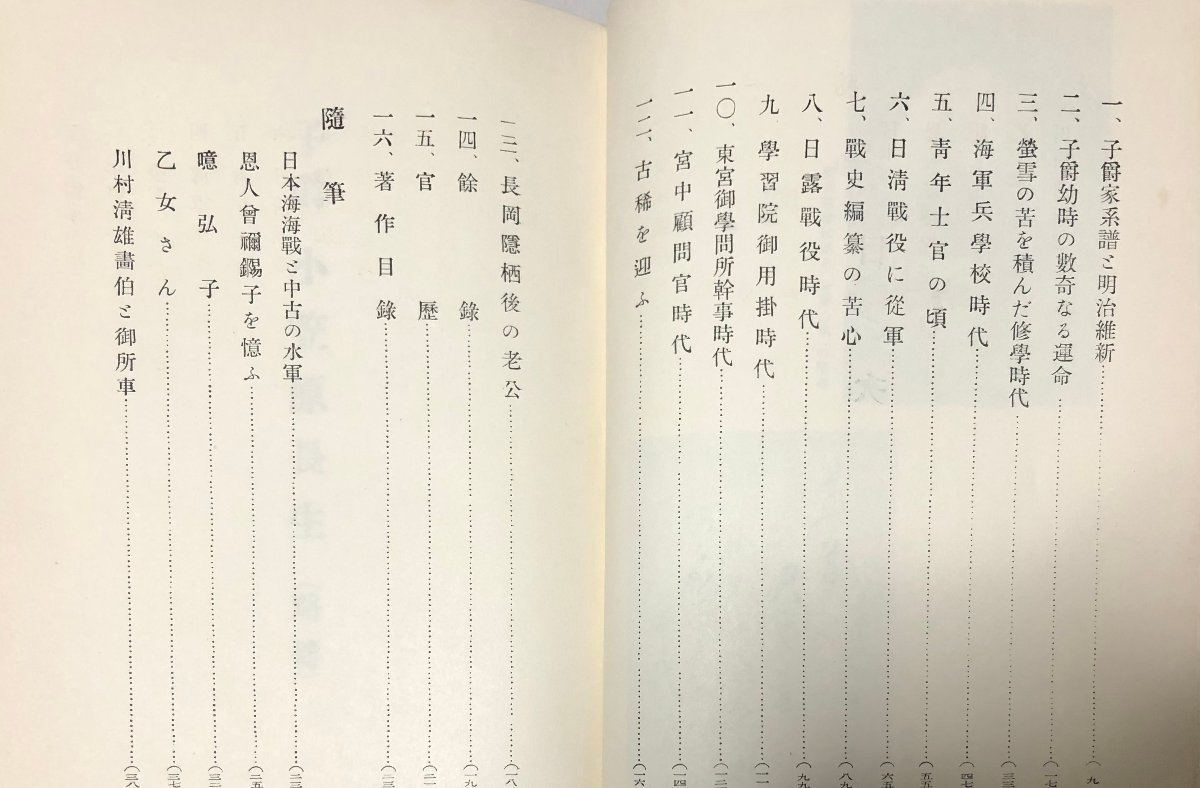 一、子爵家系譜と明治維新……（九
二、子爵幼時の數奇なる運命……（一七
三、螢雪の苦を積んだ修學時代……（三三
四、海軍兵學校時代……（四七
五、靑年士官の頃……（五五
六、日淸戰役に從軍……（六五
七、戰史編纂の苦心……（八九
八、日露戰役時代……（九九
九、學習院御用掛時代……（一一
一〇、東宮御學問所幹事時代……（一二
一一、宮中顧問官時代……（一四
一二、古稀を迎ふ……（一六
一三、長岡隱栖後の老公……（一八
一四、餘錄……（一九
一五、官歷……（二一
一六、著作目錄……（二三
隨筆
日本海海戰と中古の水軍……（二三
恩人曾禰錫子を憶ふ……（二五
噫弘子……（三二
乙女さん……（三七
川村淸雄畵伯と御所車……（三八